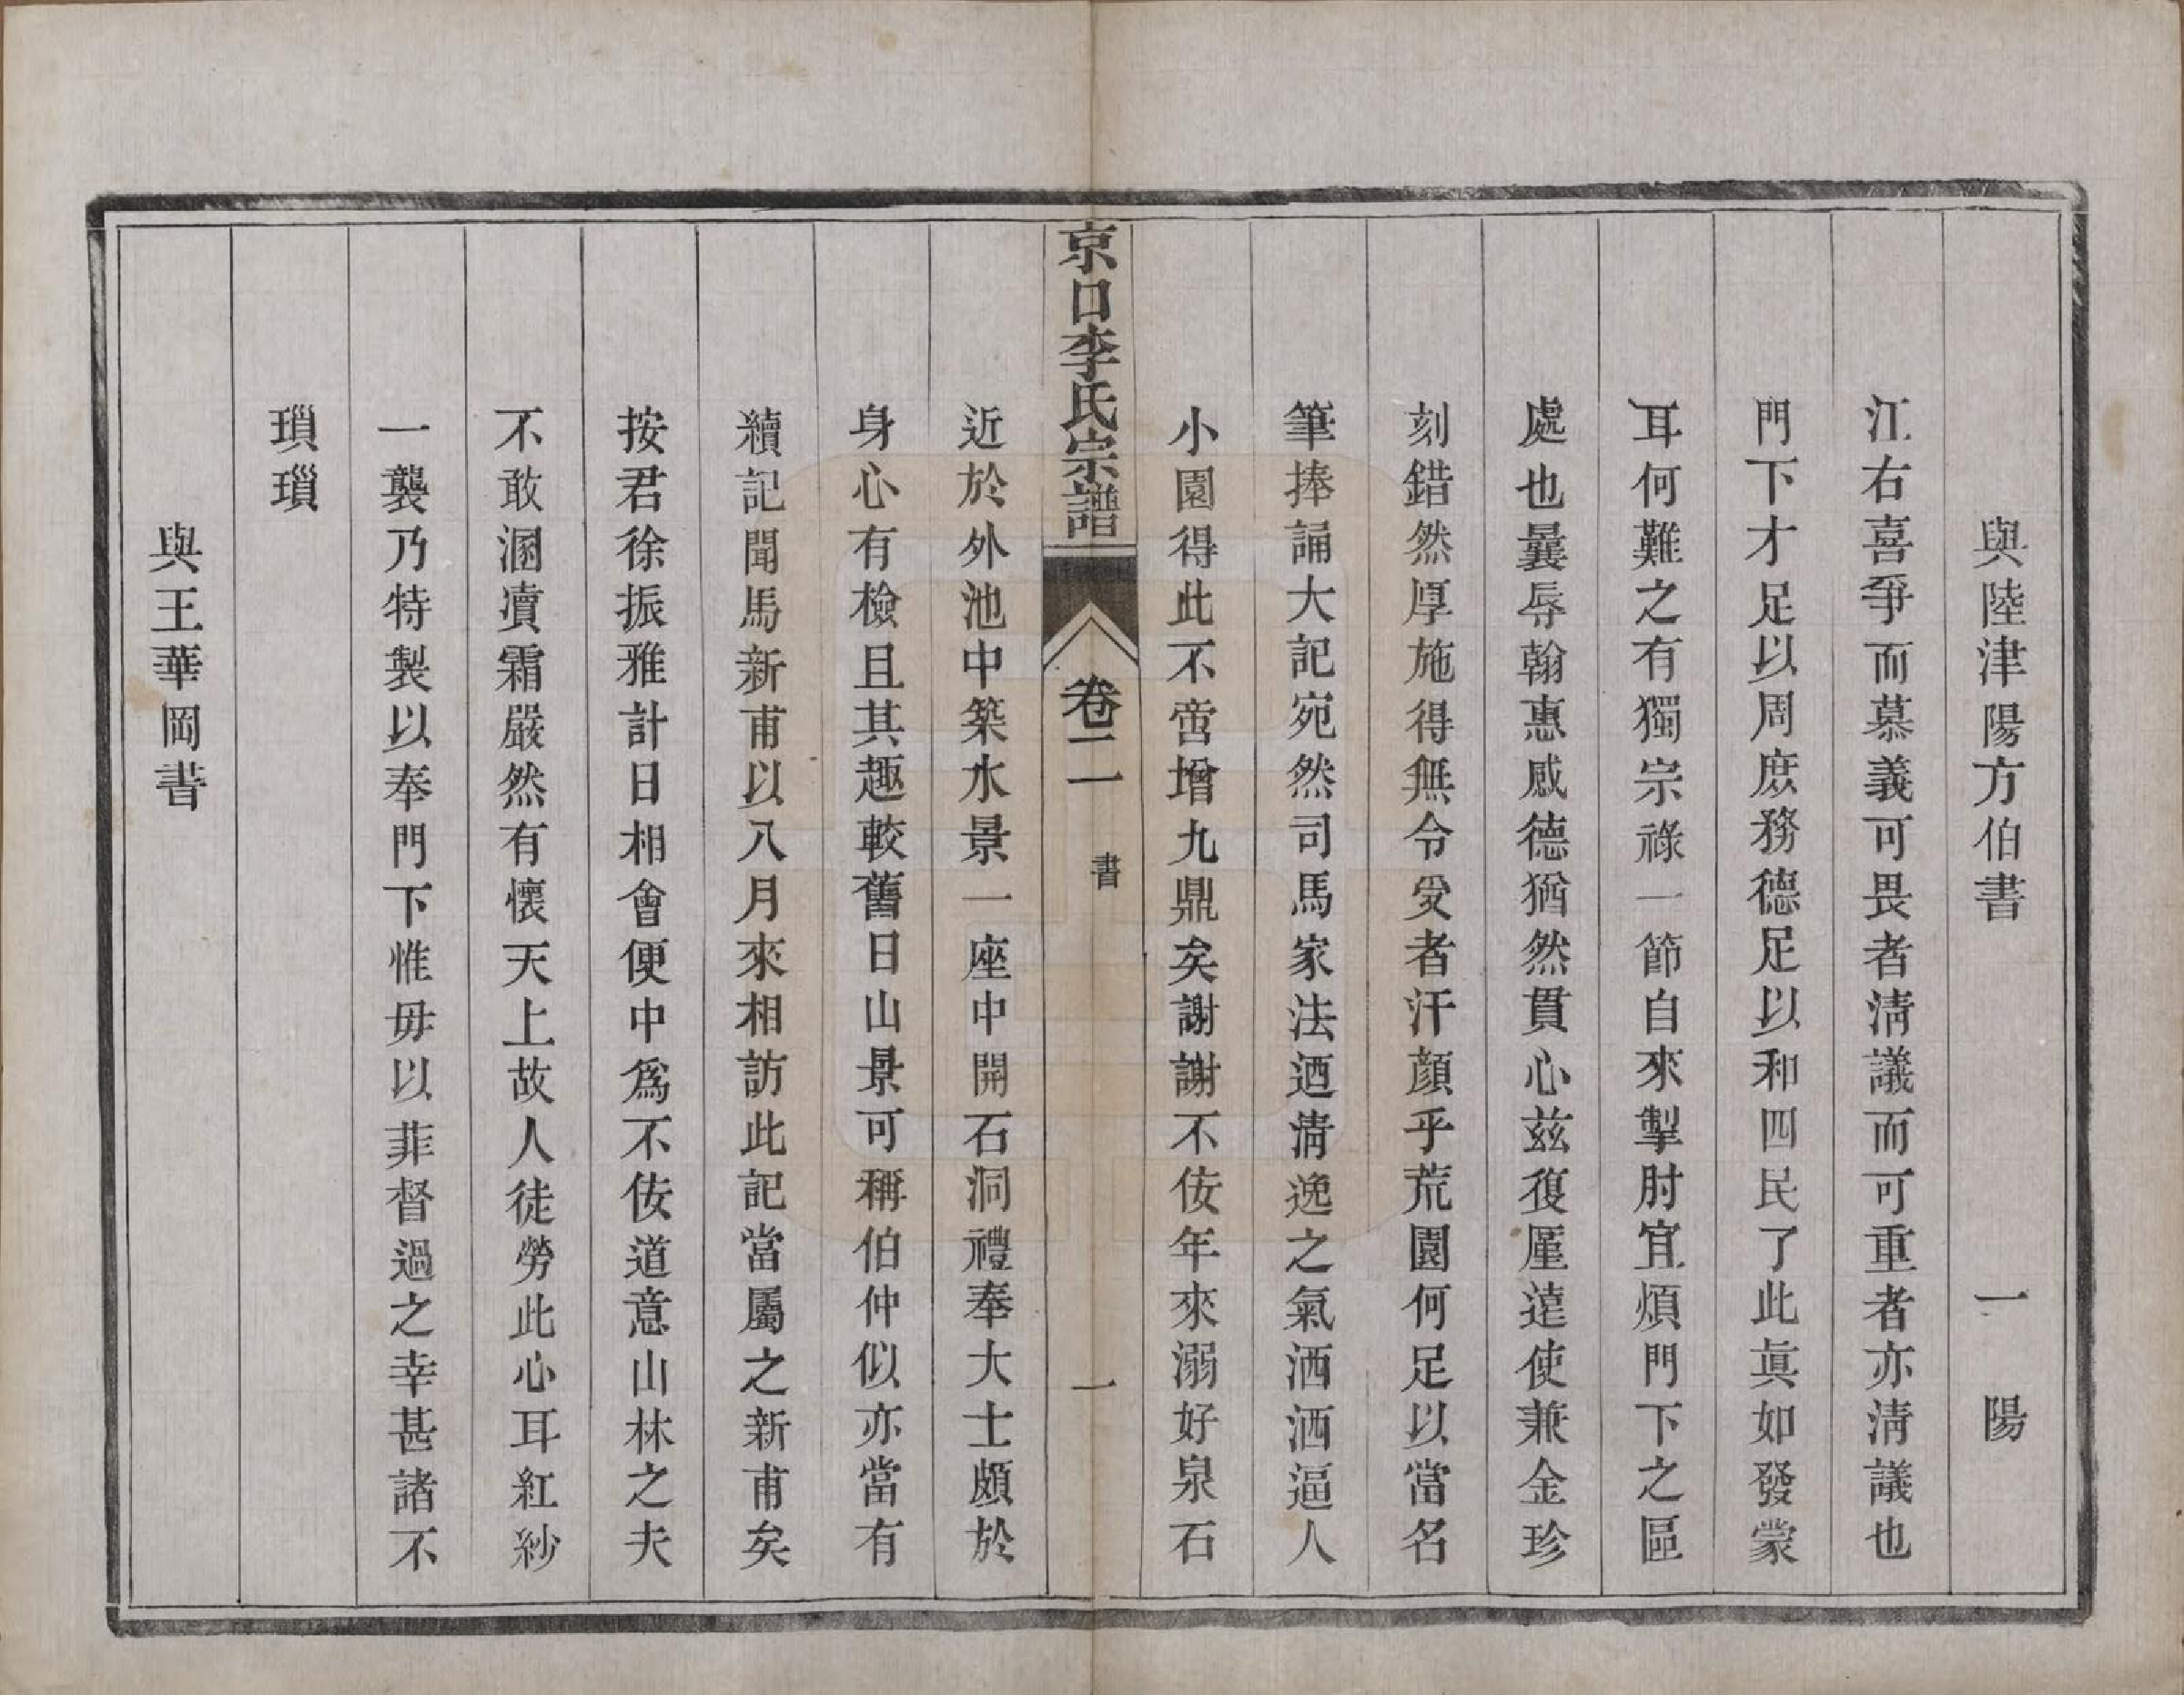 與陸津陽方伯書　一　陽
江右喜爭而慕義可畏者淸議而可重者亦淸議也
門下才足以周庶務德足以和四民了此眞如發蒙
耳何難之有獨宗祿一節自來掣肘宜煩門下之區
處也曩辱翰惠感德猶然貫心茲復厪遠使兼金珍
刻錯然厚施得無令受者汗顏乎荒園何足以當名
筆捧誦大記宛然司馬家法迺淸逸之氣洒洒逼人
小園得此不啻增九鼎矣謝謝不佞年來溺好泉石
京口李氏宗譜　卷二一　書　一
近於外池中築水景一座中開石洞禮奉大士頗於
身心有檢且其趣較舊日山景可稱伯仲似亦當有
續記聞馬新甫以入月來相訪此記當屬之新甫矣
按君徐振雅計日相會便中爲不佞道意山林之夫
不敢溷瀆霜嚴然有懷天上故人徒勞此心耳紅紗
一襲乃特製以奉門下惟毋以菲督過之幸甚諸不
瑣瑣
與王華岡書